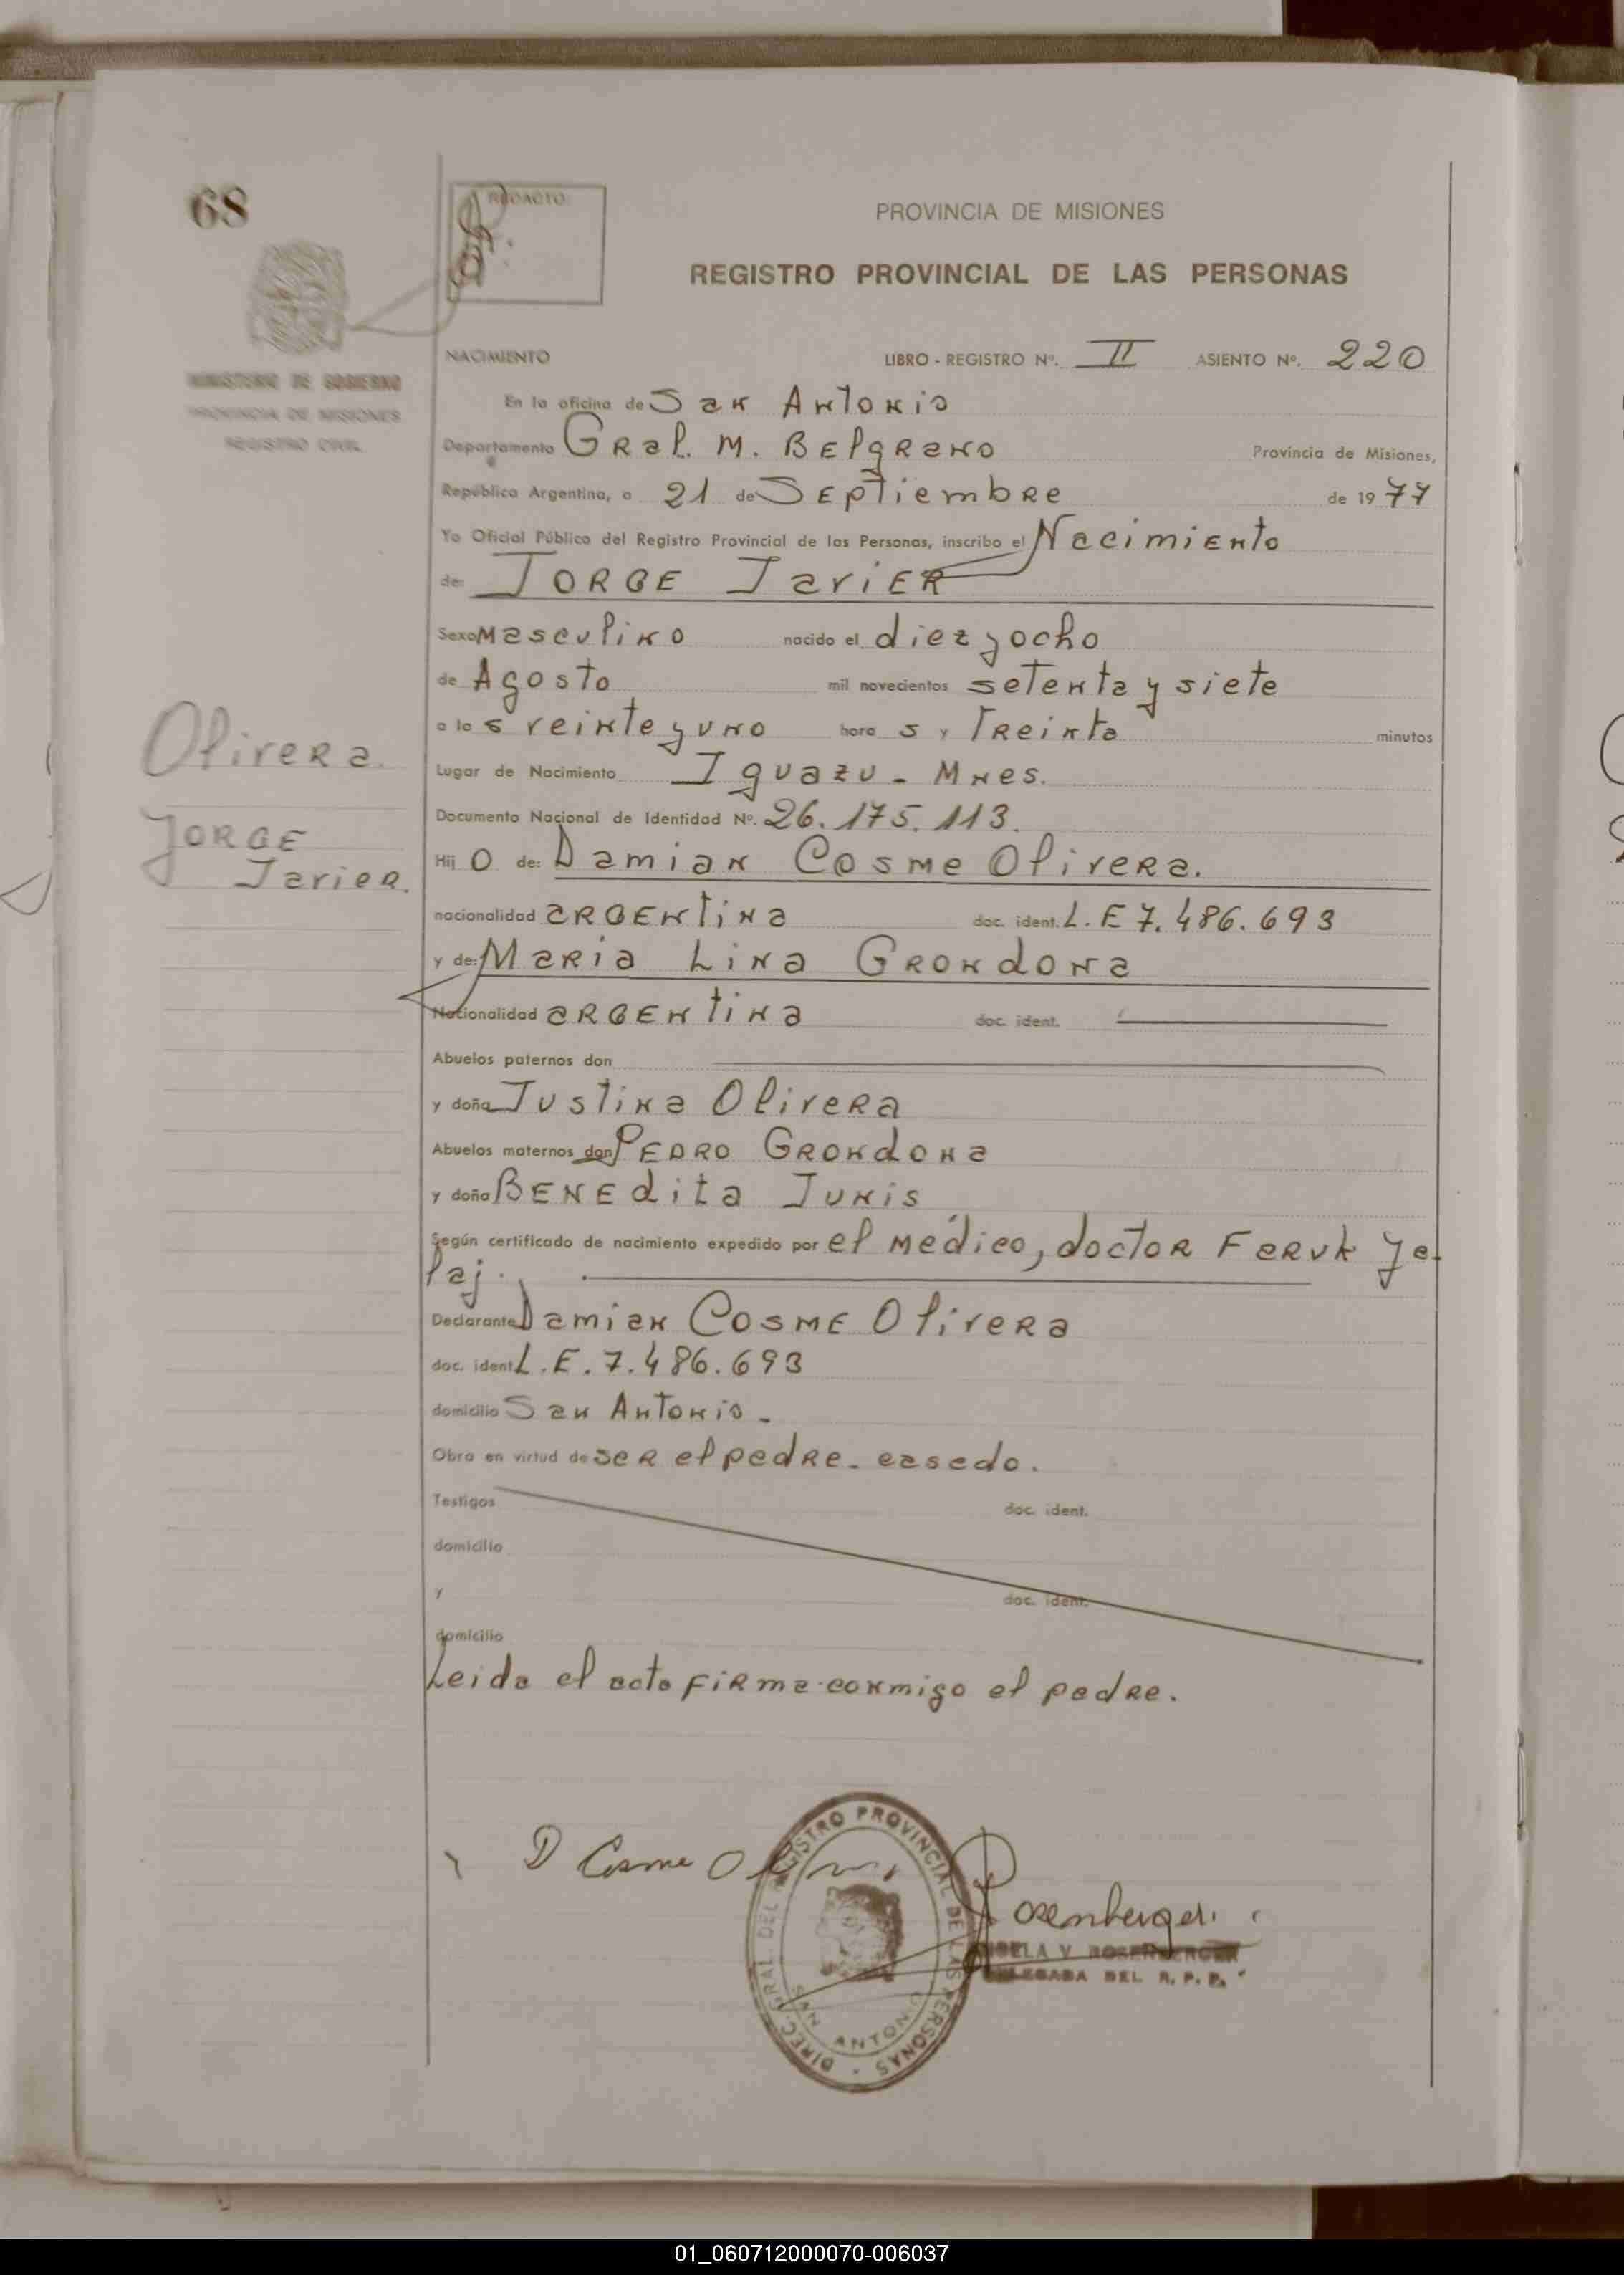 68
REDACTO:
PROVINCIA DE MISIONES
REGISTRO PROVINCIAL DE LAS PERSONAS
MINISTERIO DE GOBIERNO
PROVINCIA DE MISIONES
REGISTRO CIVIL
NACIMIENTO LIBRO - REGISTRO Nº. II ASIENTO Nº. 220
En la oficina de San Antonio
Departamento Gral. M. Belgrano Provincia de Misiones,
República Argentina, a 21 de Septiembre de 1977
Yo Oficial Público del Registro Provincial de las Personas, inscribo el Nacimiento
de: JORGE Javier
Sexo Masculino nacido el diez y ocho
de Agosto mil novecientos setenta y siete
a las veinte y uno horas y Treinta minutos
Lugar de Nacimiento Iguazu - Mnes.
Documento Nacional de Identidad Nº. 26.175.113.
Hijo de: Damian Cosme Olivera.
nacionalidad argentina doc. ident. L.E 7.486.693
y de: Maria Lina Grondona
Nacionalidad argentina doc. ident.
Abuelos paternos don
y doña Justina Olivera
Abuelos maternos don Pedro Grondona
y doña Benedita Junis
Según certificado de nacimiento expedido por el médico, doctor Faruk Ja-
laj.
Declarante Damian Cosme Olivera
doc. ident L.E. 7.486.693
domicilio San Antonio -
Obra en virtud de ser el padre - casado.
Testigos doc. ident.
domicilio
y doc. ident.
domicilio
Leida el acta firma conmigo el padre.
Olivera
JORGE
Javier.
D Cosme
Rosenberger
V ROSENBERGER
DEL R. P. P.
DIREC. GRAL. DEL REGISTRO PROVINCIAL DE LAS PERSONAS
SAN ANTONIO
01_060712000070-006037